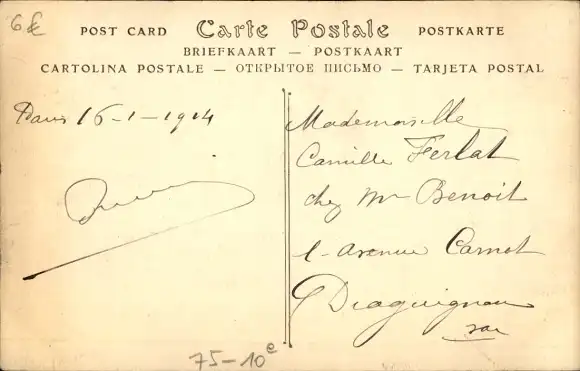 6€
POST CARD Carte Postale POSTKARTE
BRIEFKAART — POSTKAART
CARTOLINA POSTALE — ОТКРЫТОЕ ПИСЬМО — TARJETA POSTAL
Paris 16-1-1914
Mademoiselle
Camille Ferlat
chez Mr Benoit
avenue Carnot
Draguignan
Var
75-10e